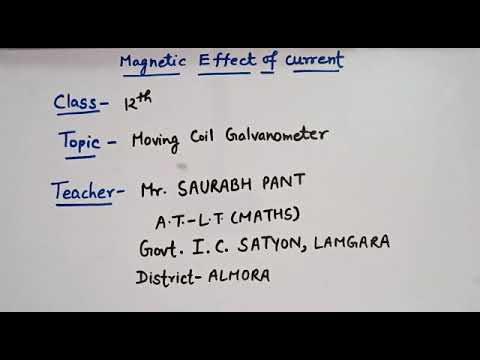 Magnetic Effect of current
Class- 12th
Topic - Moving Coil Galvanometer
Teacher- Mr. SAURABH PANT
A.T.-L.T. (MATHS)
Govt. I.C. SATYON, LAMGARA
District- ALMORA